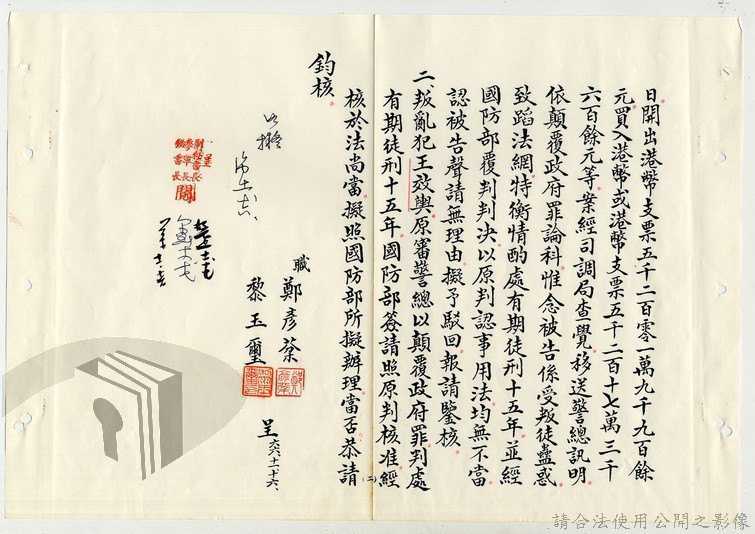 日開出港幣支票五千二百零一萬九千九百餘
元買入港幣或港幣支票五千二百十七萬三千
六百餘元等案經司調局查覺移送警總訊明
依顛覆政府罪論科惟念被告係受叛徒蠱惑
致蹈法網特衡情酌處有期徒刑十五年並經
國防部覆判判決以原判認事用法均無不當
認被告聲請無理由擬予駁回報請鑒核
二叛亂犯王效輿原審警總以顛覆政府罪判處
有期徒刑十五年國防部簽請照原判核准經
核於法尚當擬照國防部所擬辦理當否恭請
鈞核
職鄭彥棻
黎玉璽
呈
六六十二十六
(二)
呈
參軍長
秘書長
閱
請合法使用公開之影像